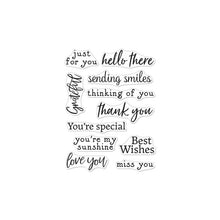 just
for you
hello there
sending smiles
Grateful
thinking of you
thank you
You're special
you're my
sunshine
Best
Wishes
love you
miss you